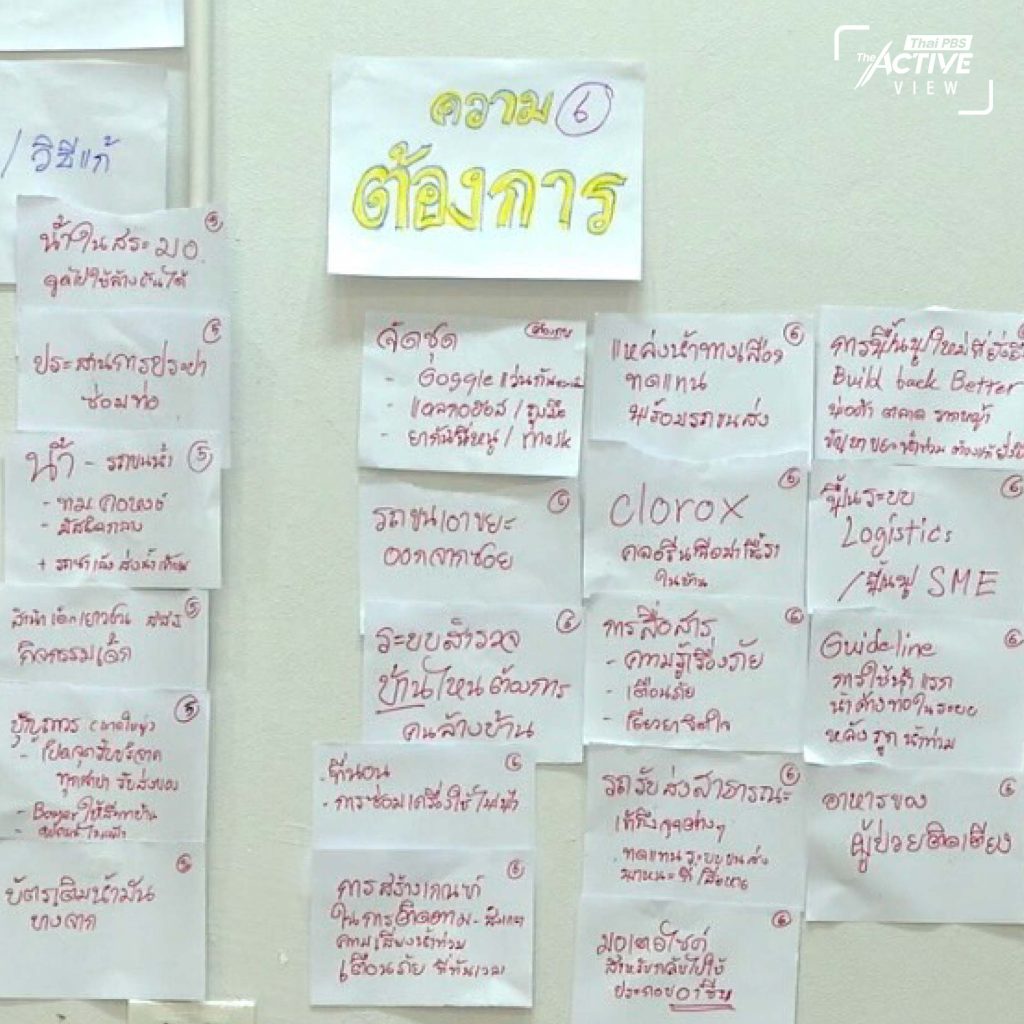 Thai PBS
The ACTIVE
VIEW
/ วิธีแก้
น้ำในสระ มอ.
ดูดไปใช้ล้าง
ประสานการประปา
ซ่อมท่อ
น้ำ - รถขนน้ำ
- ทม. คอหงส์
กิจกรรมเด็ก
- เปิดจุดรับบริจาค
ทุกสาขา รับส่งของ
บัตรเติมน้ำมัน
บางจาก
ความ 6
ต้องการ
จัดชุด
- Goggle แว่นกัน
- แอลกอฮอล์ / ถุงมือ
- ยากันฉี่หนู / mask
รถขนเอาขยะ
ออกจากซอย
ระบบสำรวจ
บ้านไหนต้องการ
คนล้างบ้าน
- ที่นอน
- การซ่อมเครื่องใช้ไฟฟ้า
การสร้างเกณฑ์
ในการติดตาม -
ความเสี่ยงน้ำท่วม
เตือนภัย ที่ทันเวลา
แหล่งน้ำทางเลือก
ทดแทน
พร้อมรถขนส่ง
clorox
คลอรีนเพื่อฆ่าเชื้อรา
ในบ้าน
การสื่อสาร
- ความรู้เรื่องภัย
- เตือนภัย
- เยียวยาจิตใจ
รถรับส่งสาธารณะ
เข้าถึงจุดต่างๆ
ทดแทนระบบขนส่ง
พาหนะที่เสียหาย
มอเตอไซด์
สำหรับกลับไปใช้
ประกอบอาชีพ
การฟื้นฟูใหม่ที่ยั่งยืน
Build back Better
พ่อค้า ตลาด หาดใหญ่
ปัญหาขยะ น้ำท่วม
ฟื้นระบบ
Logistics
/ฟื้นฟู SME
Guideline
การใช้น้ำ แรก
น้ำค้างท่อในระบบ
หลังถูกน้ำท่วม
อาหารของ
ผู้ป่วยติดเตียง